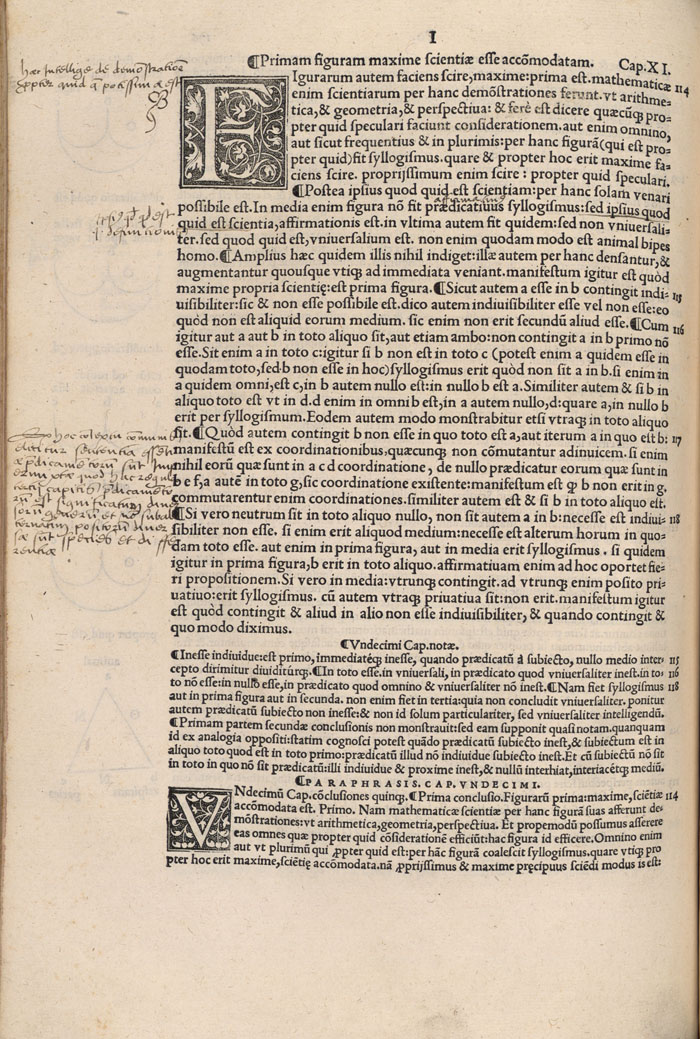 I
¶Primam figuram maxime scientiæ esse accõmodatam. Cap.XI.
FIgurarum autem faciens scire,maxime:prima est.mathematicæ 114
enim scientiarum per hanc demõstrationes ferunt.vt arithme-
tica,& geometria,& perspectiua: & ferè est dicere quæcũq; pro-
pter quid speculari faciunt considerationem.aut enim omnino,
aut sicut frequentius & in plurimis:per hanc figurã(qui est pro-
pter quid)fit syllogismus.quare & propter hoc erit maxime fa-
ciens scire. proprijssimum enim scire : propter quid speculari.
¶Postea ipsius quod quid est scientiam:per hanc solam venari
possibile est.In media enim figura nõ fit prædicatiuus syllogismus:sed ipsius quod
quid est scientia,affirmationis est.in vltima autem fit quidem:sed non vniuersali-
ter.sed quod quid est,vniuersalium est. non enim quodam modo est animal bipes
homo.¶Amplius hæc quidem illis nihil indiget:illæ autem per hanc densantur,&
augmentantur quousque vtiq; ad immediata veniant.manifestum igitur est quòd
maxime propria scientię:est prima figura.¶Sicut autem a esse in b contingit indi- 115
uisibiliter:sic & non esse possibile est.dico autem indiuisibiliter esse vel non esse:eo
quòd non est aliquid eorum medium. sic enim non erit secundũ aliud esse.¶Cum 116
igitur aut a aut b in toto aliquo sit,aut etiam ambo:non contingit a in b primo nõ
esse.Sit enim a in toto c:igitur si b non est in toto c (potest enim a quidem esse in
quodam toto,sed b non esse in hoc)syllogismus erit quòd non sit a in b.si enim in
a quidem omni,est c,in b autem nullo est:in nullo b est a.Similiter autem & si b in
aliquo toto est vt in d.d enim in omni b est,in a autem nullo,d:quare a,in nullo b
erit per syllogismum.Eodem autem modo monstrabitur etsi vtraq; in toto aliquo
sit.¶Quòd autem contingit b non esse in quo toto est a,aut iterum a in quo est b: 117
manifestũ est ex coordinationibus,quæcunq; non cõmutantur adinuicem. si enim
nihil eorũ quæ sunt in a c d coordinatione , de nullo prædicatur eorum quæ sunt in
b e f,a autẽ in toto g,sic coordinatione existente:manifestum est ꝙ b non erit in g.
commutarentur enim coordinationes.similiter autem est & si b in toto aliquo est.
¶Si vero neutrum sit in toto aliquo nullo, non sit autem a in b:necesse est indiui- 118
sibiliter non esse. si enim erit aliquod medium:necesse est alterum horum in quo-
dam toto esse. aut enim in prima figura, aut in media erit syllogismus . si quidem
igitur in prima figura,b erit in toto aliquo.affirmatiuam enim ad hoc oportet fie-
ri propositionem.Si vero in media:vtrunq; contingit.ad vtrunq; enim posito pri-
uatiuo:erit syllogismus. cũ autem vtraq; priuatiua sit:non erit.manifestum igitur
est quòd contingit & aliud in alio non esse indiuisibiliter, & quando contingit &
quo modo diximus.
¶Vndecimi Cap.notæ.
¶Inesse indiuidue:est primo,immediatéq; inesse, quando prædicatũ à subiecto, nullo medio inter- 115
cepto dirimitur diuiditúrq;.¶In toto esse.in vniuersali, in prædicato quod vniuersaliter inest.in to- 116
to nõ esse:in nullo esse,in prædicato quod omnino & vniuersaliter nõ inest.¶Nam fiet syllogismus 118
aut in prima figura aut in secunda. non enim fiet in tertia:quia non concludit vniuersaliter. ponitur
autem prædicatũ subiecto non inesse:& non id solum particulariter, sed vniuersaliter intelligendũ.
¶Primam partem secundæ conclusionis non monstrauit:sed eam supponit quasi notam.quanquam
id ex analogia oppositi:statim cognosci potest quãdo prædicatũ subiecto inest,& subiectum est in
aliquo toto quod est in toto primo:prædicatũ illud nõ indiuidue subiecto inest.Et cũ subiectũ nõ sit
in toto in quo nõ sit prædicatũ:illi indiuidue & proxime inest,& nullũ interhiat,interiacétq; mediũ.
¶PARAPHRASIS. CAP. VNDECIMI.
VNdecimũ Cap.cõclusiones quinq;.¶Prima conclusio.Figurarũ prima:maxime,sciẽtiæ 114
accõmodata est. Primo. Nam mathematicæ scientiæ per hanc figurã suas afferunt de-
mõstrationes:vt arithmetica,geometria,perspectiua. Et propemodũ possumus asserere
eas omnes quæ propter quid cõsiderationẽ efficiũt:hac figura id efficere.Omnino enim
aut vt plurimũ qui ꝓpter quid est:per hãc figurã coalescit syllogismus.quare vtiq; pro
pter hoc erit maxime,sciẽtię accõmodata.nã ꝓprijssimus & maxime præcipuus sciẽdi modus is est: